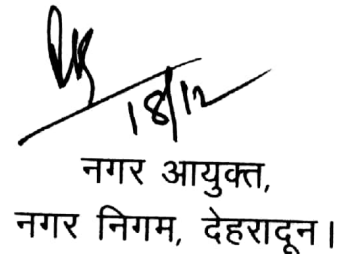 18/12
नगर आयुक्त,
नगर निगम, देहरादून।